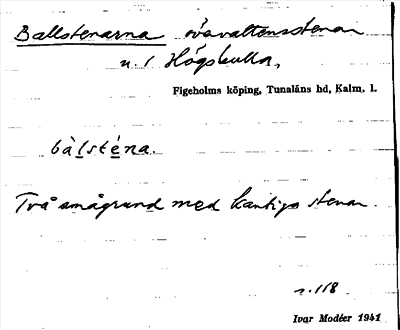 Ballstenarna övavattensstenar
n. / Högskulla,
Figeholms köping, Tunaläns hd, Kalm. l.
bàlsténa.
Två smågrund med kantiga stenar.
s. 118
Ivar Modéer 1941